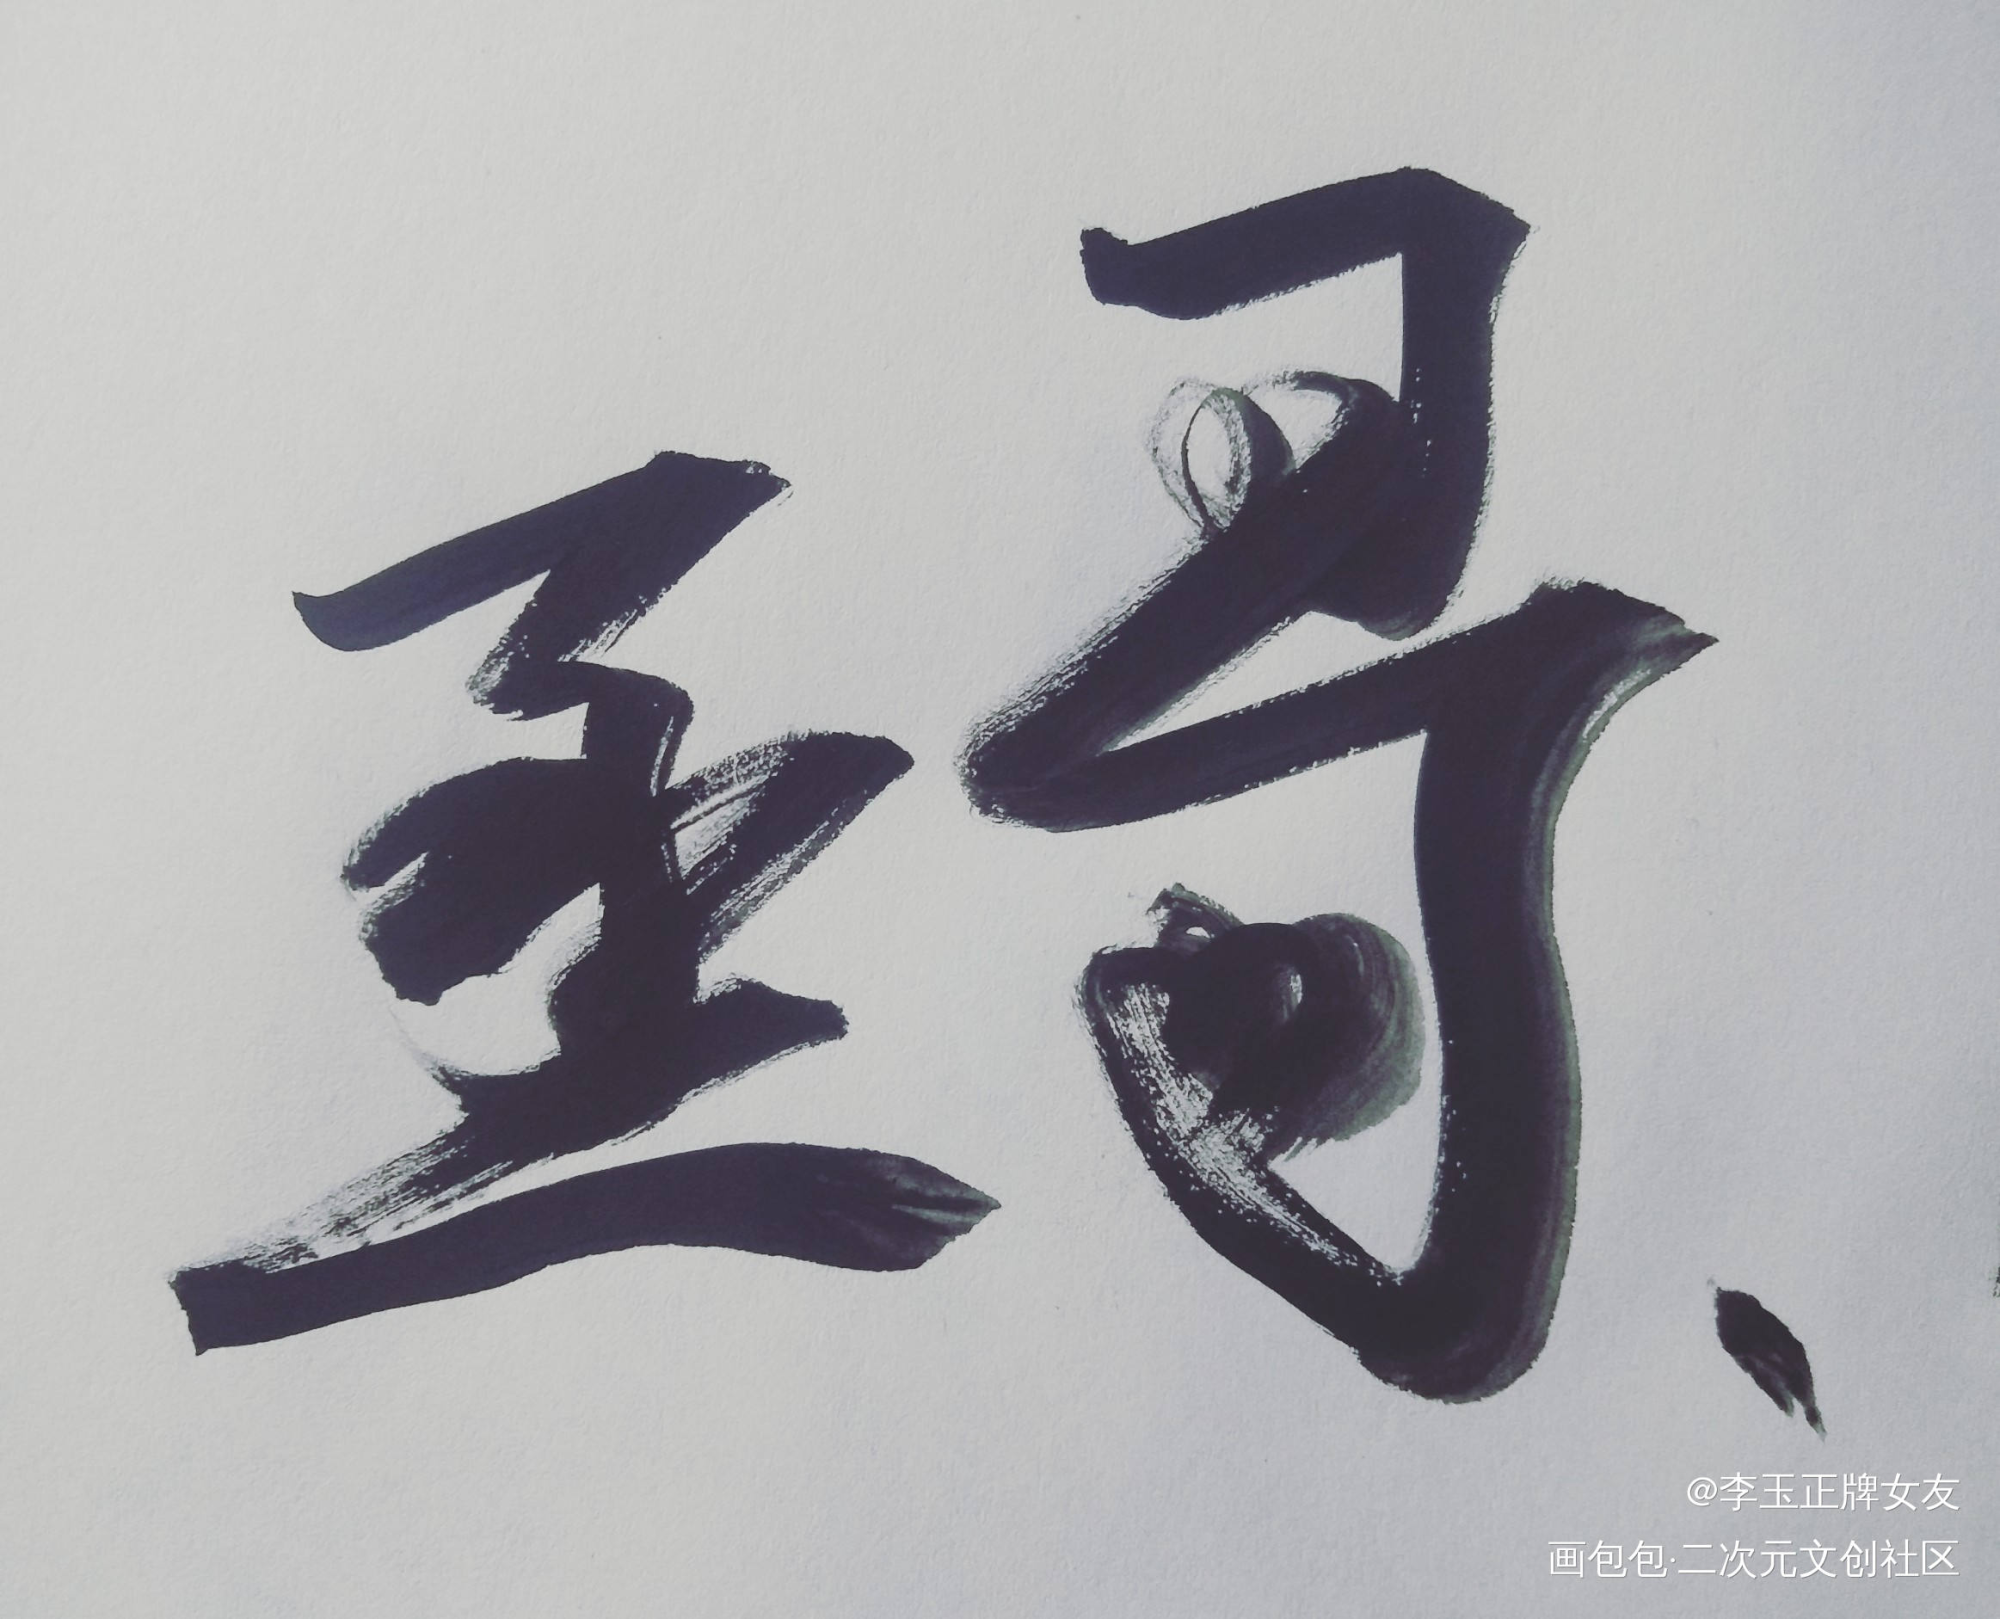 寻
@李玉正牌女友
画包包·二次元文创社区